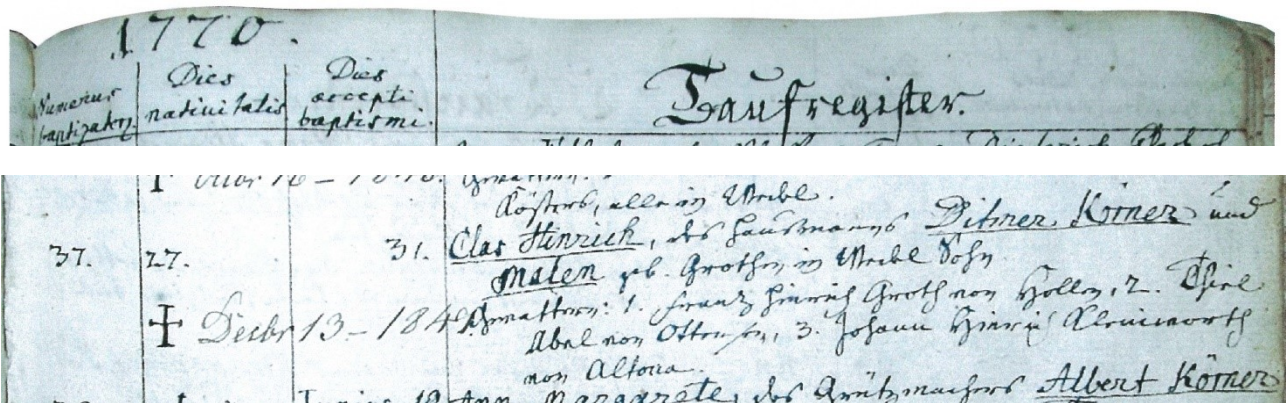 1770.
Numerus baptizator. Dies nativitatis Dies accepti baptismi. Taufregister.
Kösters, alle in Wevel.
37. 27. 31. Clas Hinrich, des Hausmanns Ditmer Körner und
Malen geb. Grothen in Wevel Sohn.
† Decbr 13 – 184 Gevattern: 1. Frantz Hinrich Groth von Holln, 2. Thiel
Abel von Ottensen, 3. Johann Hinrich Kleinworth
von Altona.
Junius 19 Ann Margarete, des Grützmachers Albert Körner